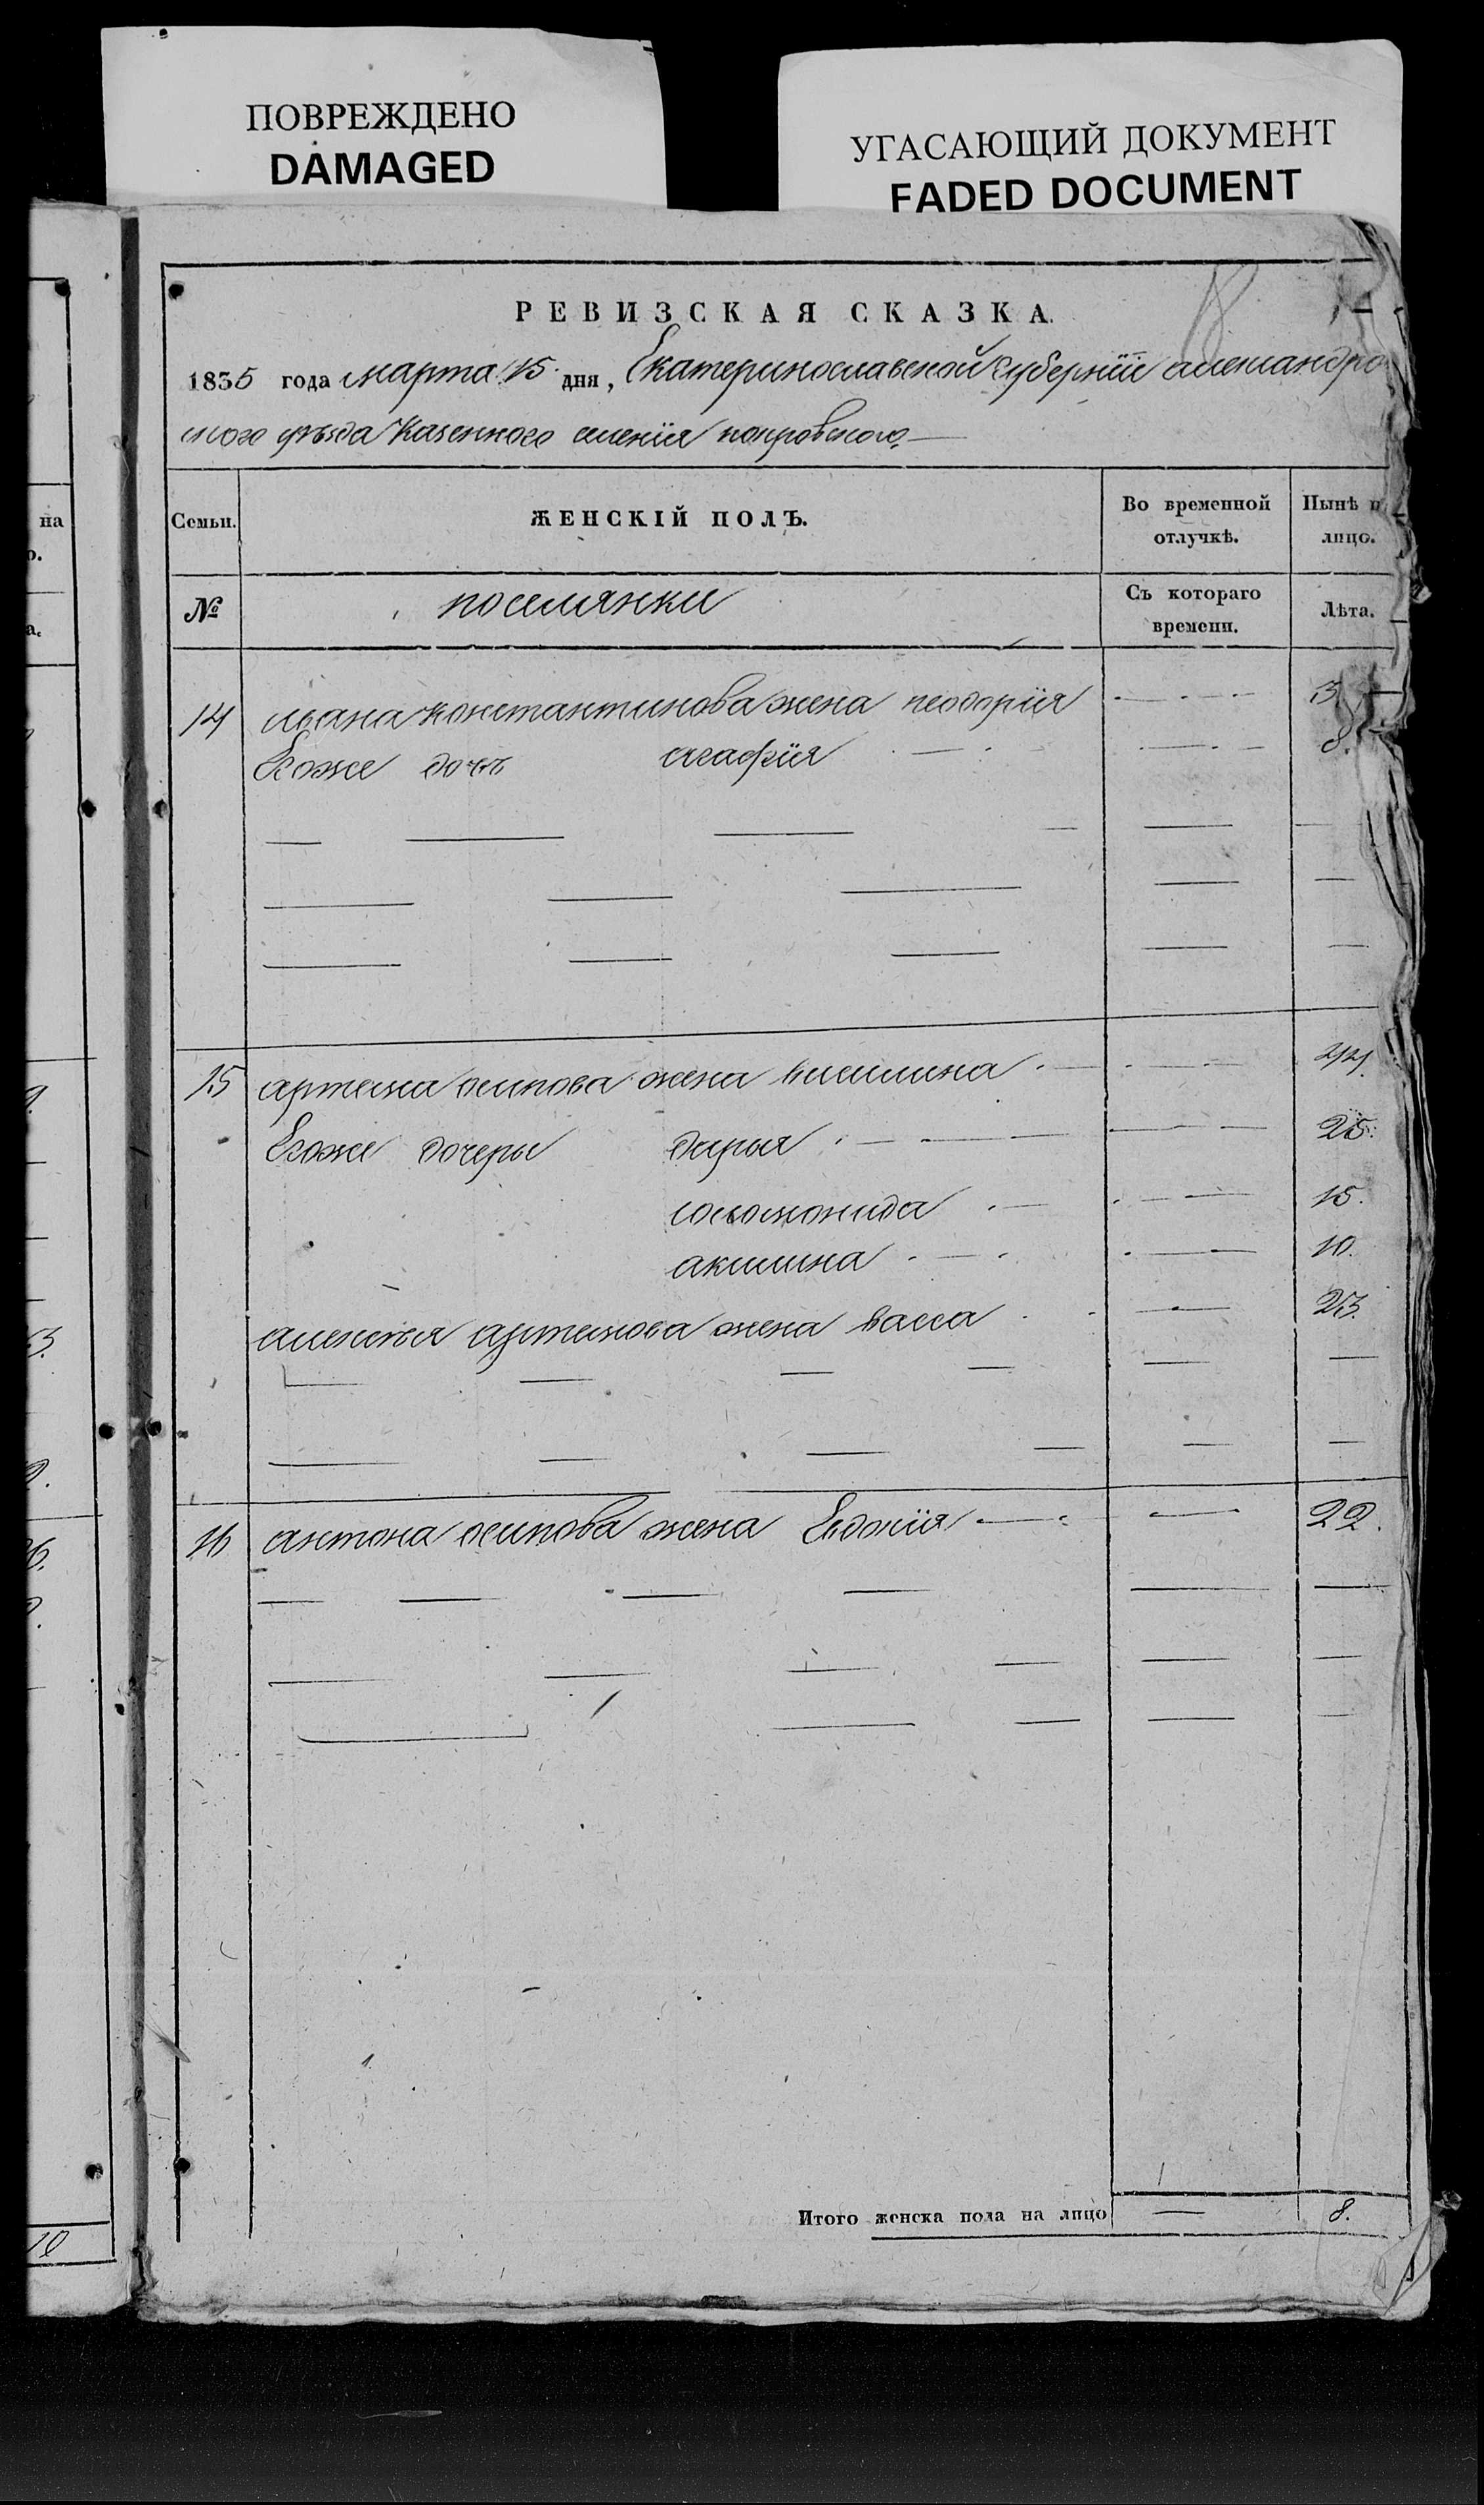 ПОВРЕЖДЕНО
DAMAGED
УГАСАЮЩИЙ ДОКУМЕНТ
FADED DOCUMENT
РЕВИЗСКАЯ СКАЗКА.
1835 года марта 15 дня, Екатеринославской губернїи александро
ского уезда казенного имения покровского
Семьи. ЖЕНСКІЙ ПОЛЪ. Во временной отлучкѣ. Нынѣ н лицо.
№ поселянки Съ котораго времени. Лѣта.
14 константинова жена 3
Егоже дочь агафїя 8.
15 артема осипова жена 44
Егоже дочеры дарья 25
соломонида 15.
акилина 10.
алексея артемова жена васса 23.
16 антона осипова жена Евдокїя 22.
Итого женска пола на лицо — 8.
на
о.
а.
3.
9.
6.
10